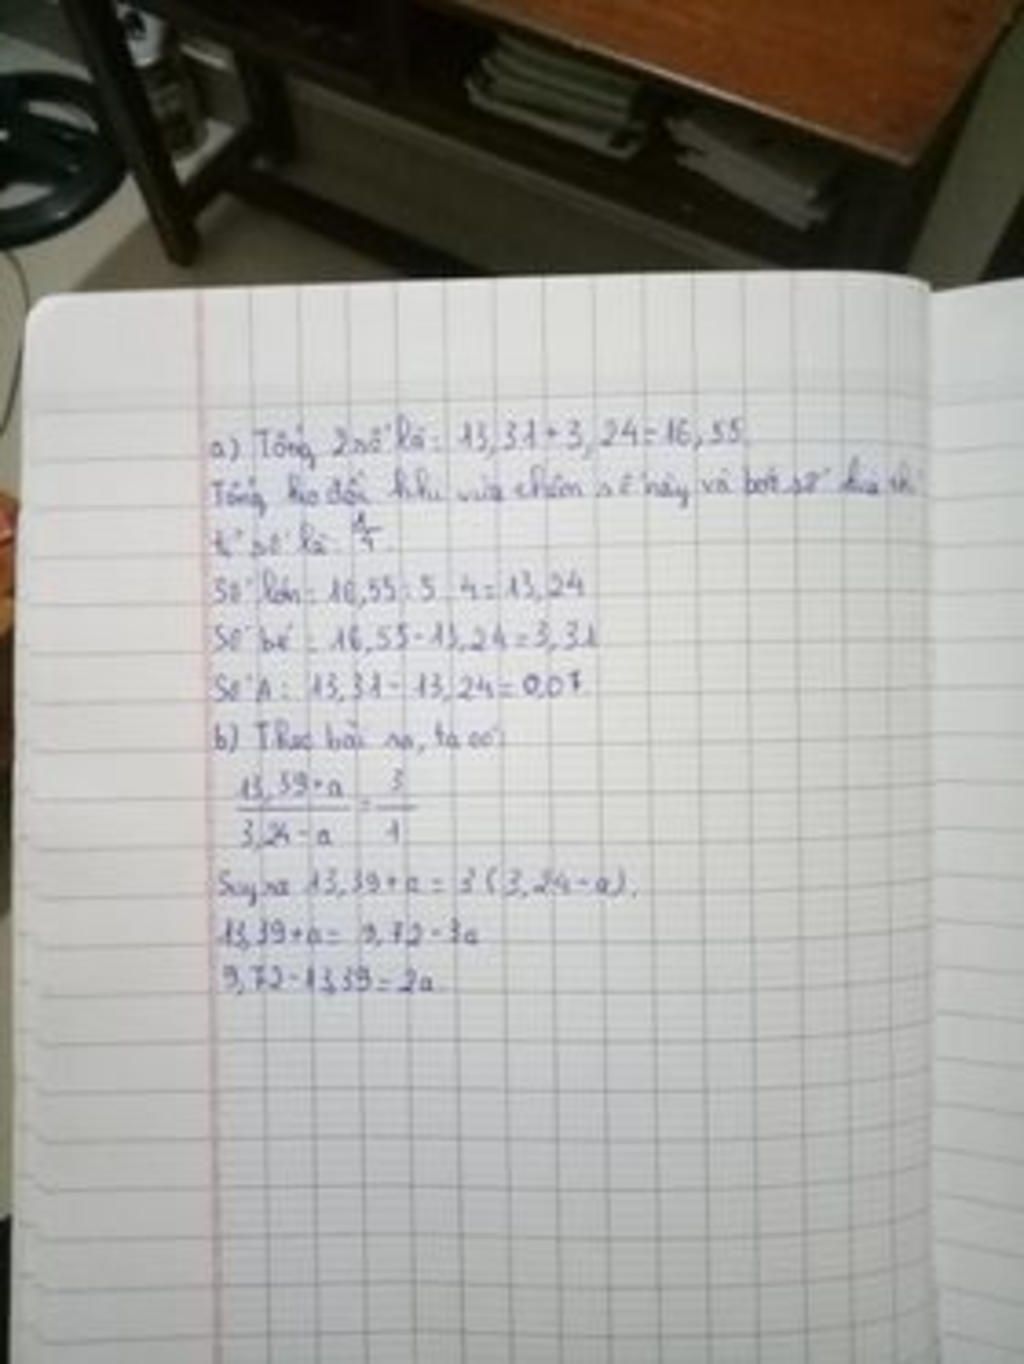 a) Tổng 2 số là: 13,31 + 3,24 = 16,55.
Tổng ko đổi khi vừa thêm số này và bớt số kia thì
tỉ số là
Số lớn: 16,55 : 5 . 4 = 13,24
Số bé: 16,55 - 13,24 = 3,31
Số A: 13,31 - 13,24 = 0,07
b) Theo bài ra, ta có:
13,39 + a / 3,24 - a = 3 / 1
Suy ra 13,39 + a = 3 (3,24 - a).
13,39 + a = 9,72 - 3a
9,72 - 13,39 = 2a